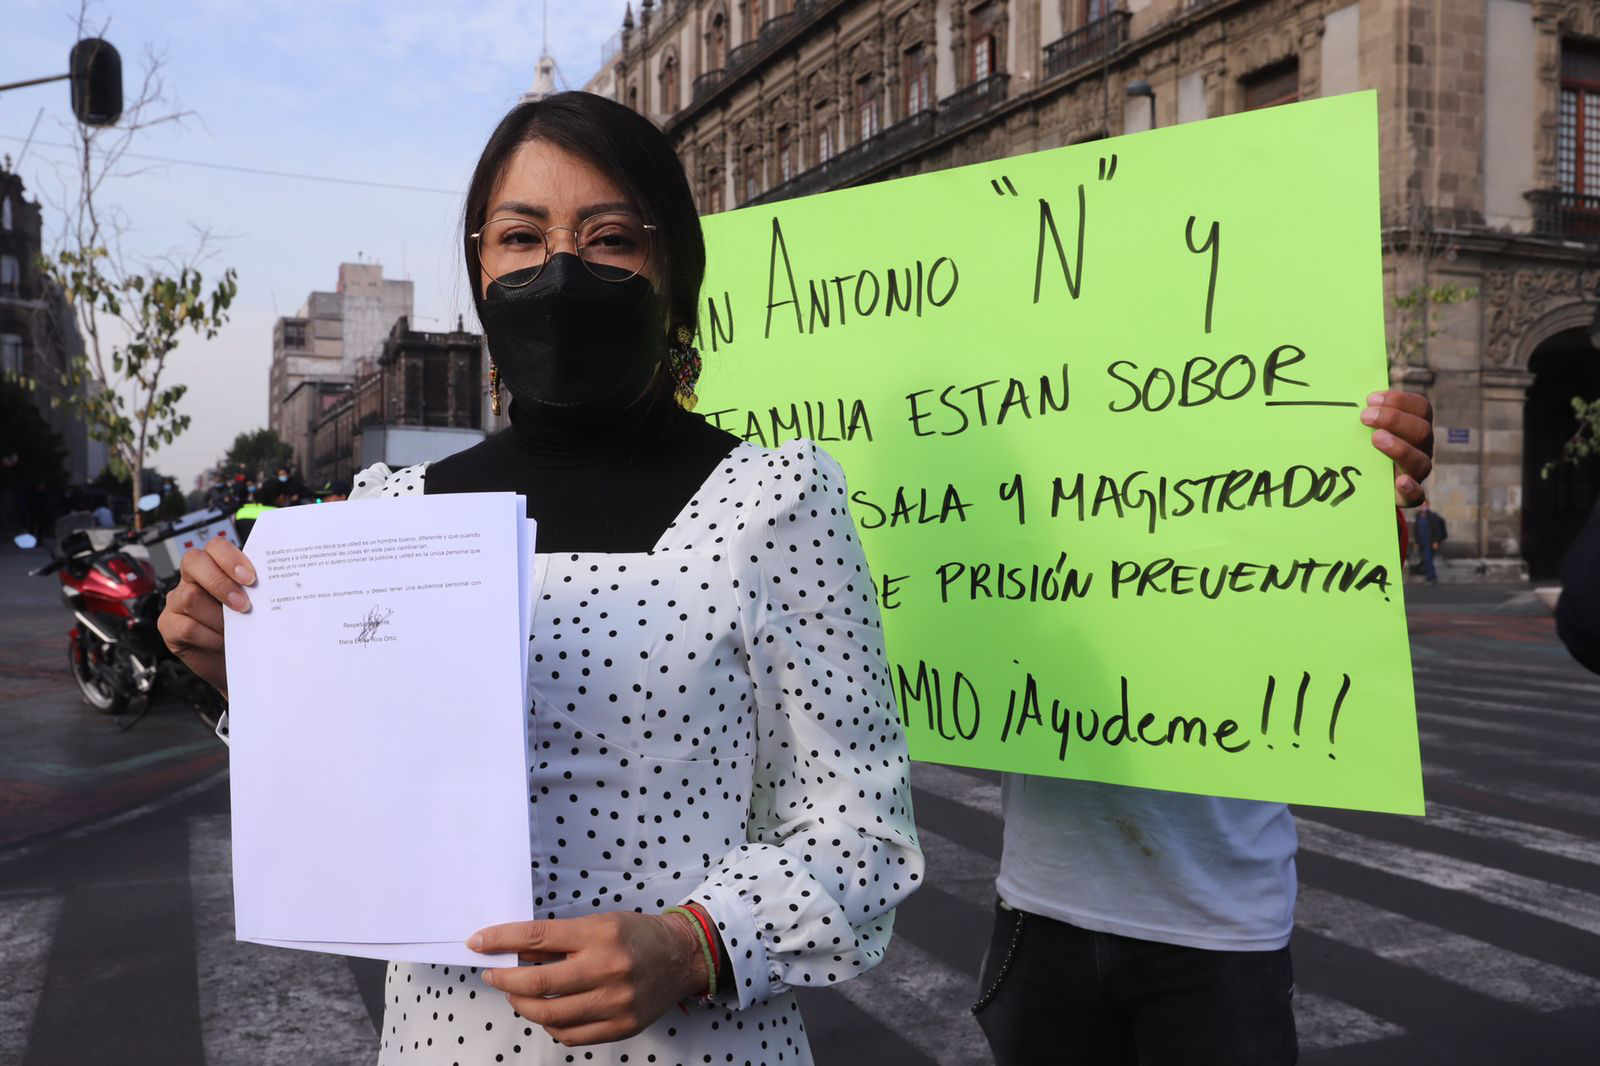 Mi abuelo sin conocerlo me decía que usted es un hombre bueno, diferente y que cuando
usted llegara a la silla presidencial las cosas en este país cambiarían.
Mi abuelo ya no vive pero yo si quiero conocer la justicia y usted es la única persona que
puede ayudarme.
Le agradezco en recibir estos documentos, y deseo tener una audiencia personal con
usted.
María Elena Ríos Ortiz
AN ANTONIO "N" y
FAMILIA ESTAN SOBOR
SALA y MAGISTRADOS
E PRISIÓN PREVENTIVA
MLO ¡Ayudeme!!!